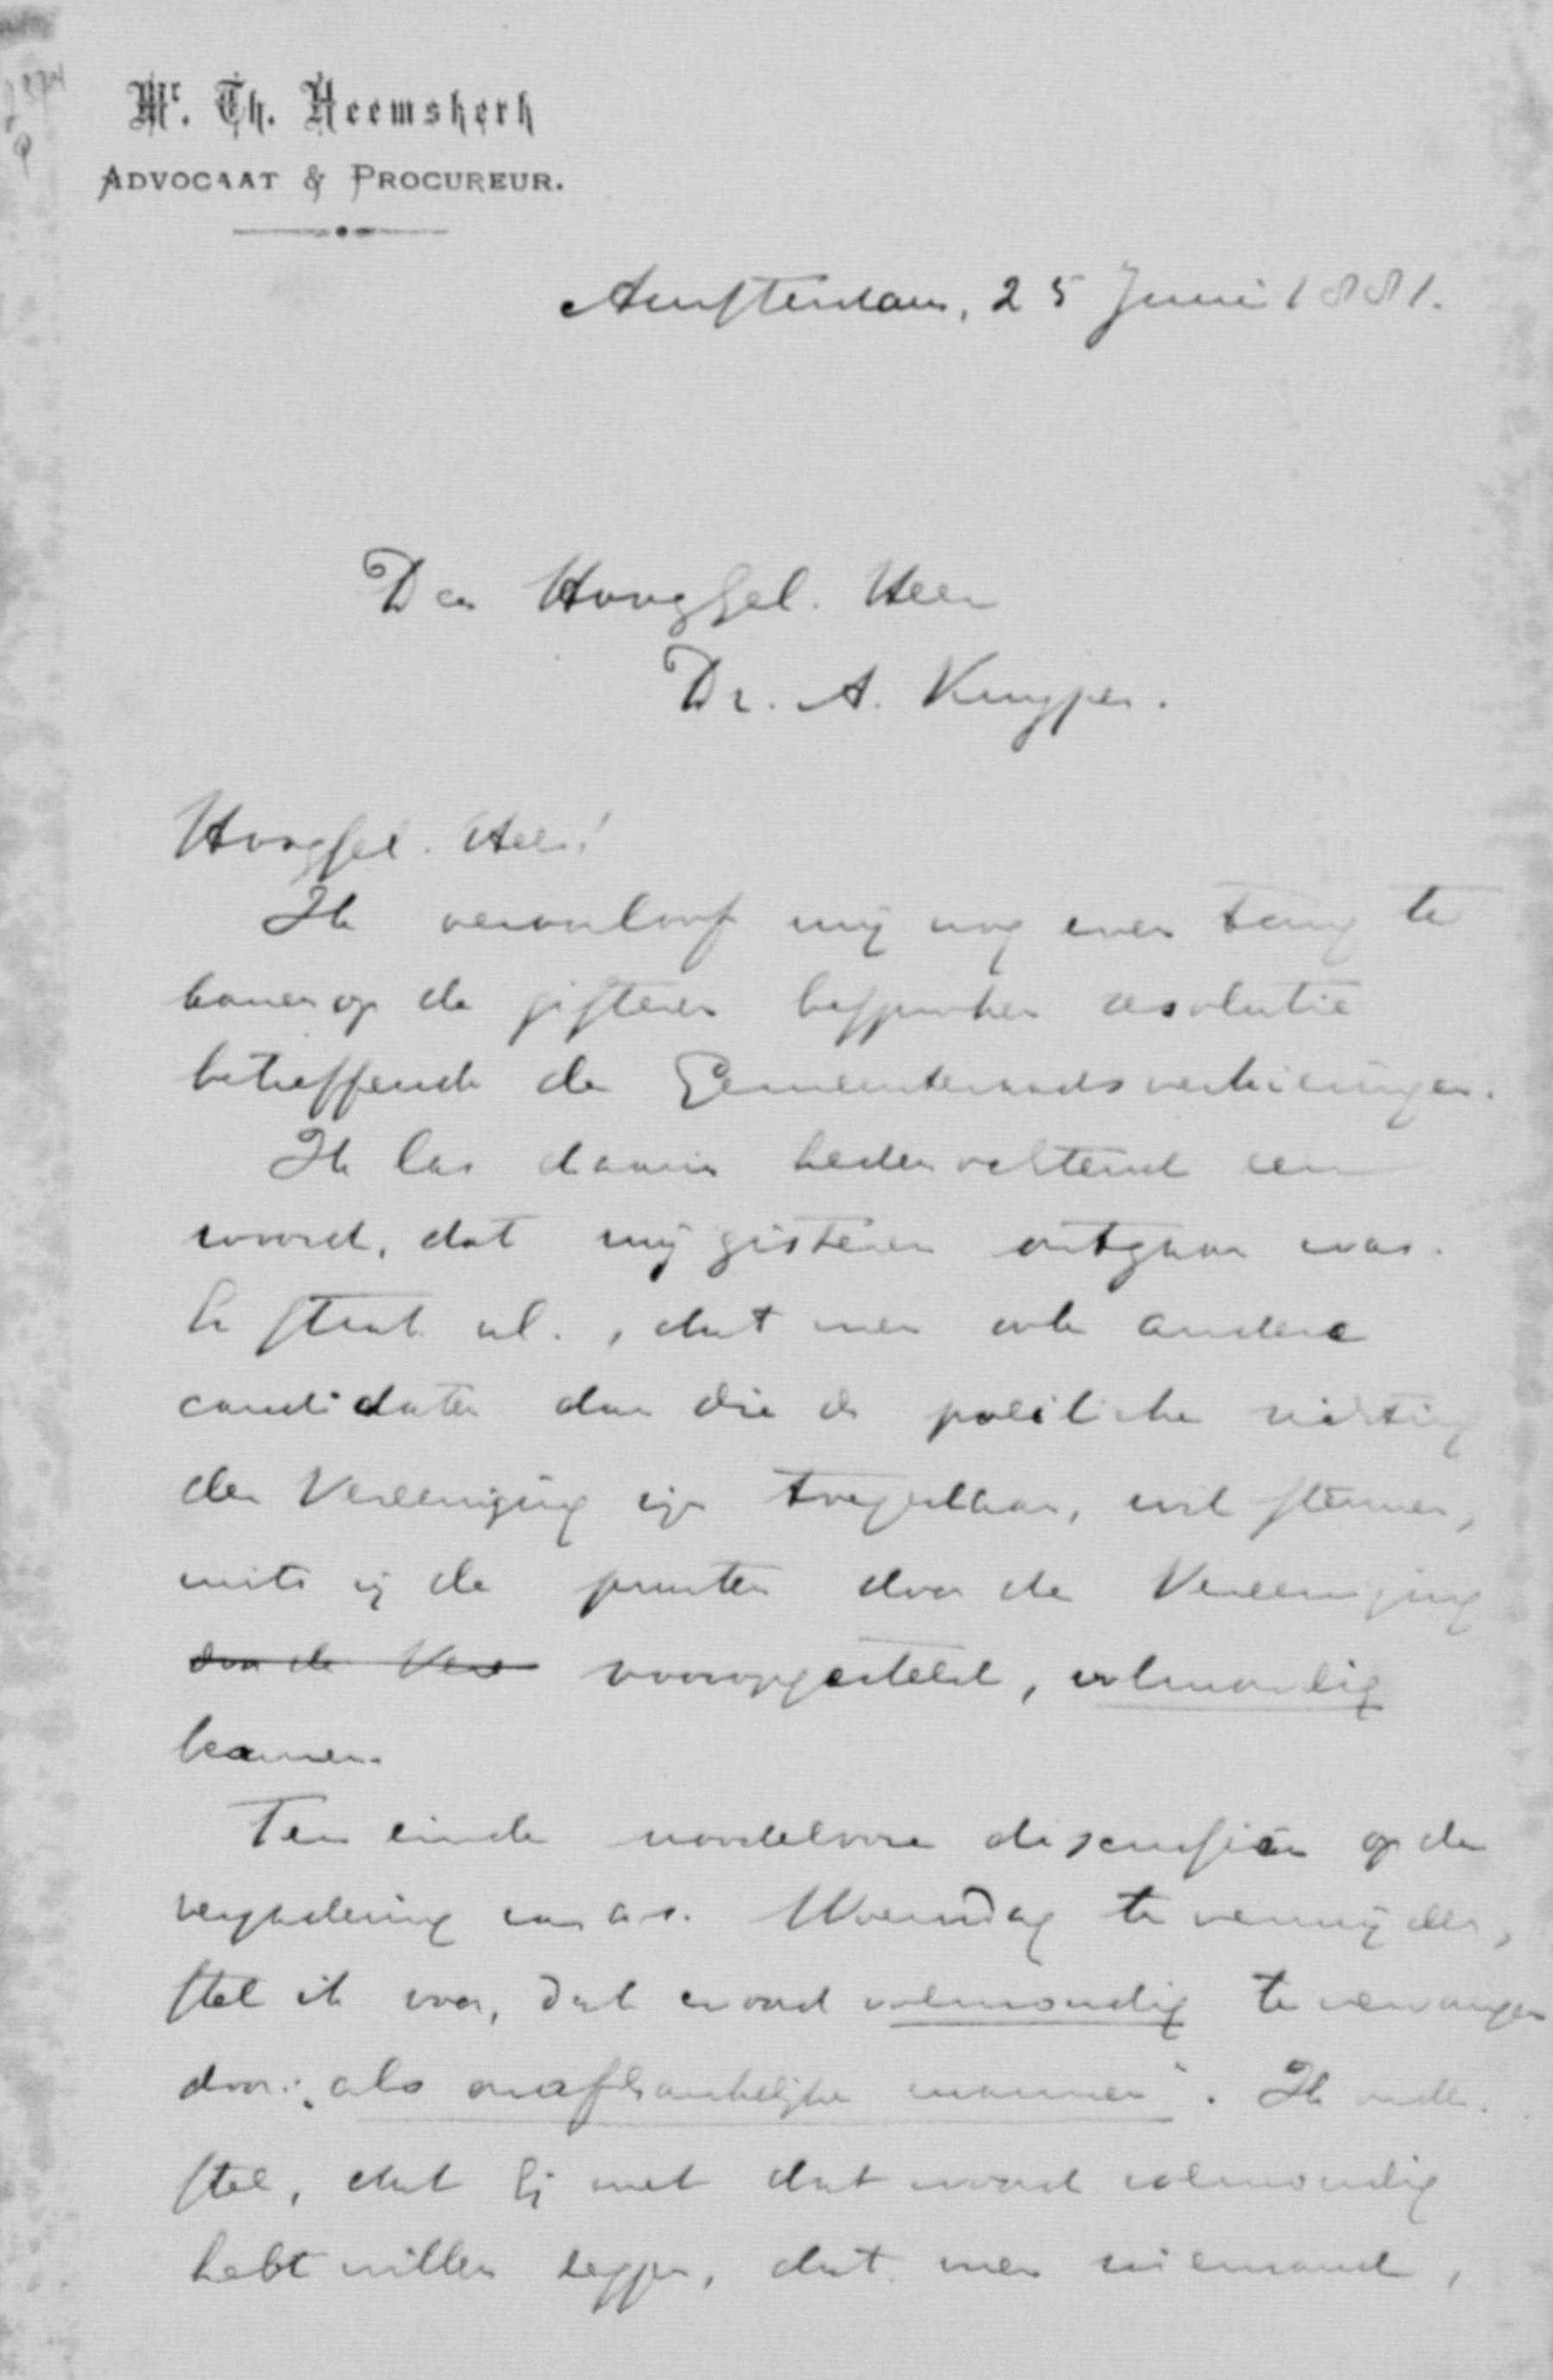 Mr. Th. Heemskerk
ADVOCAAT & PROCUREUR.
Amsterdam, 25 Juni 1881.
Den Hooggel. Heer
Dr. A. Kuyper.
Hooggel. Heer!
Ik veroorloof mij nog even terug te
komen op de gisteren besproken resolutie
betreffende de Gemeenteraadsverkiezingen.
Ik las daarin hedenochtend een
woord, dat mij gisteren ontgaan was.
Er staat nl., dat men ook andere
candidaten dan die de politieke richting
der Vereeniging zijn toegedaan, wil steunen,
mits zij de punten door de Vereeniging
door de Ver vooropgesteld, volmondig
beamen.
Ten einde noodelooze discussiën op de
vergadering van a.s. Woensdag te vermijden,
stel ik voor, dat woord volmondig te vervangen
door: „als onafhankelijke mannen". Ik onder-
stel, dat gij met dat woord volmondig
hebt willen zeggen, dat men niemand,